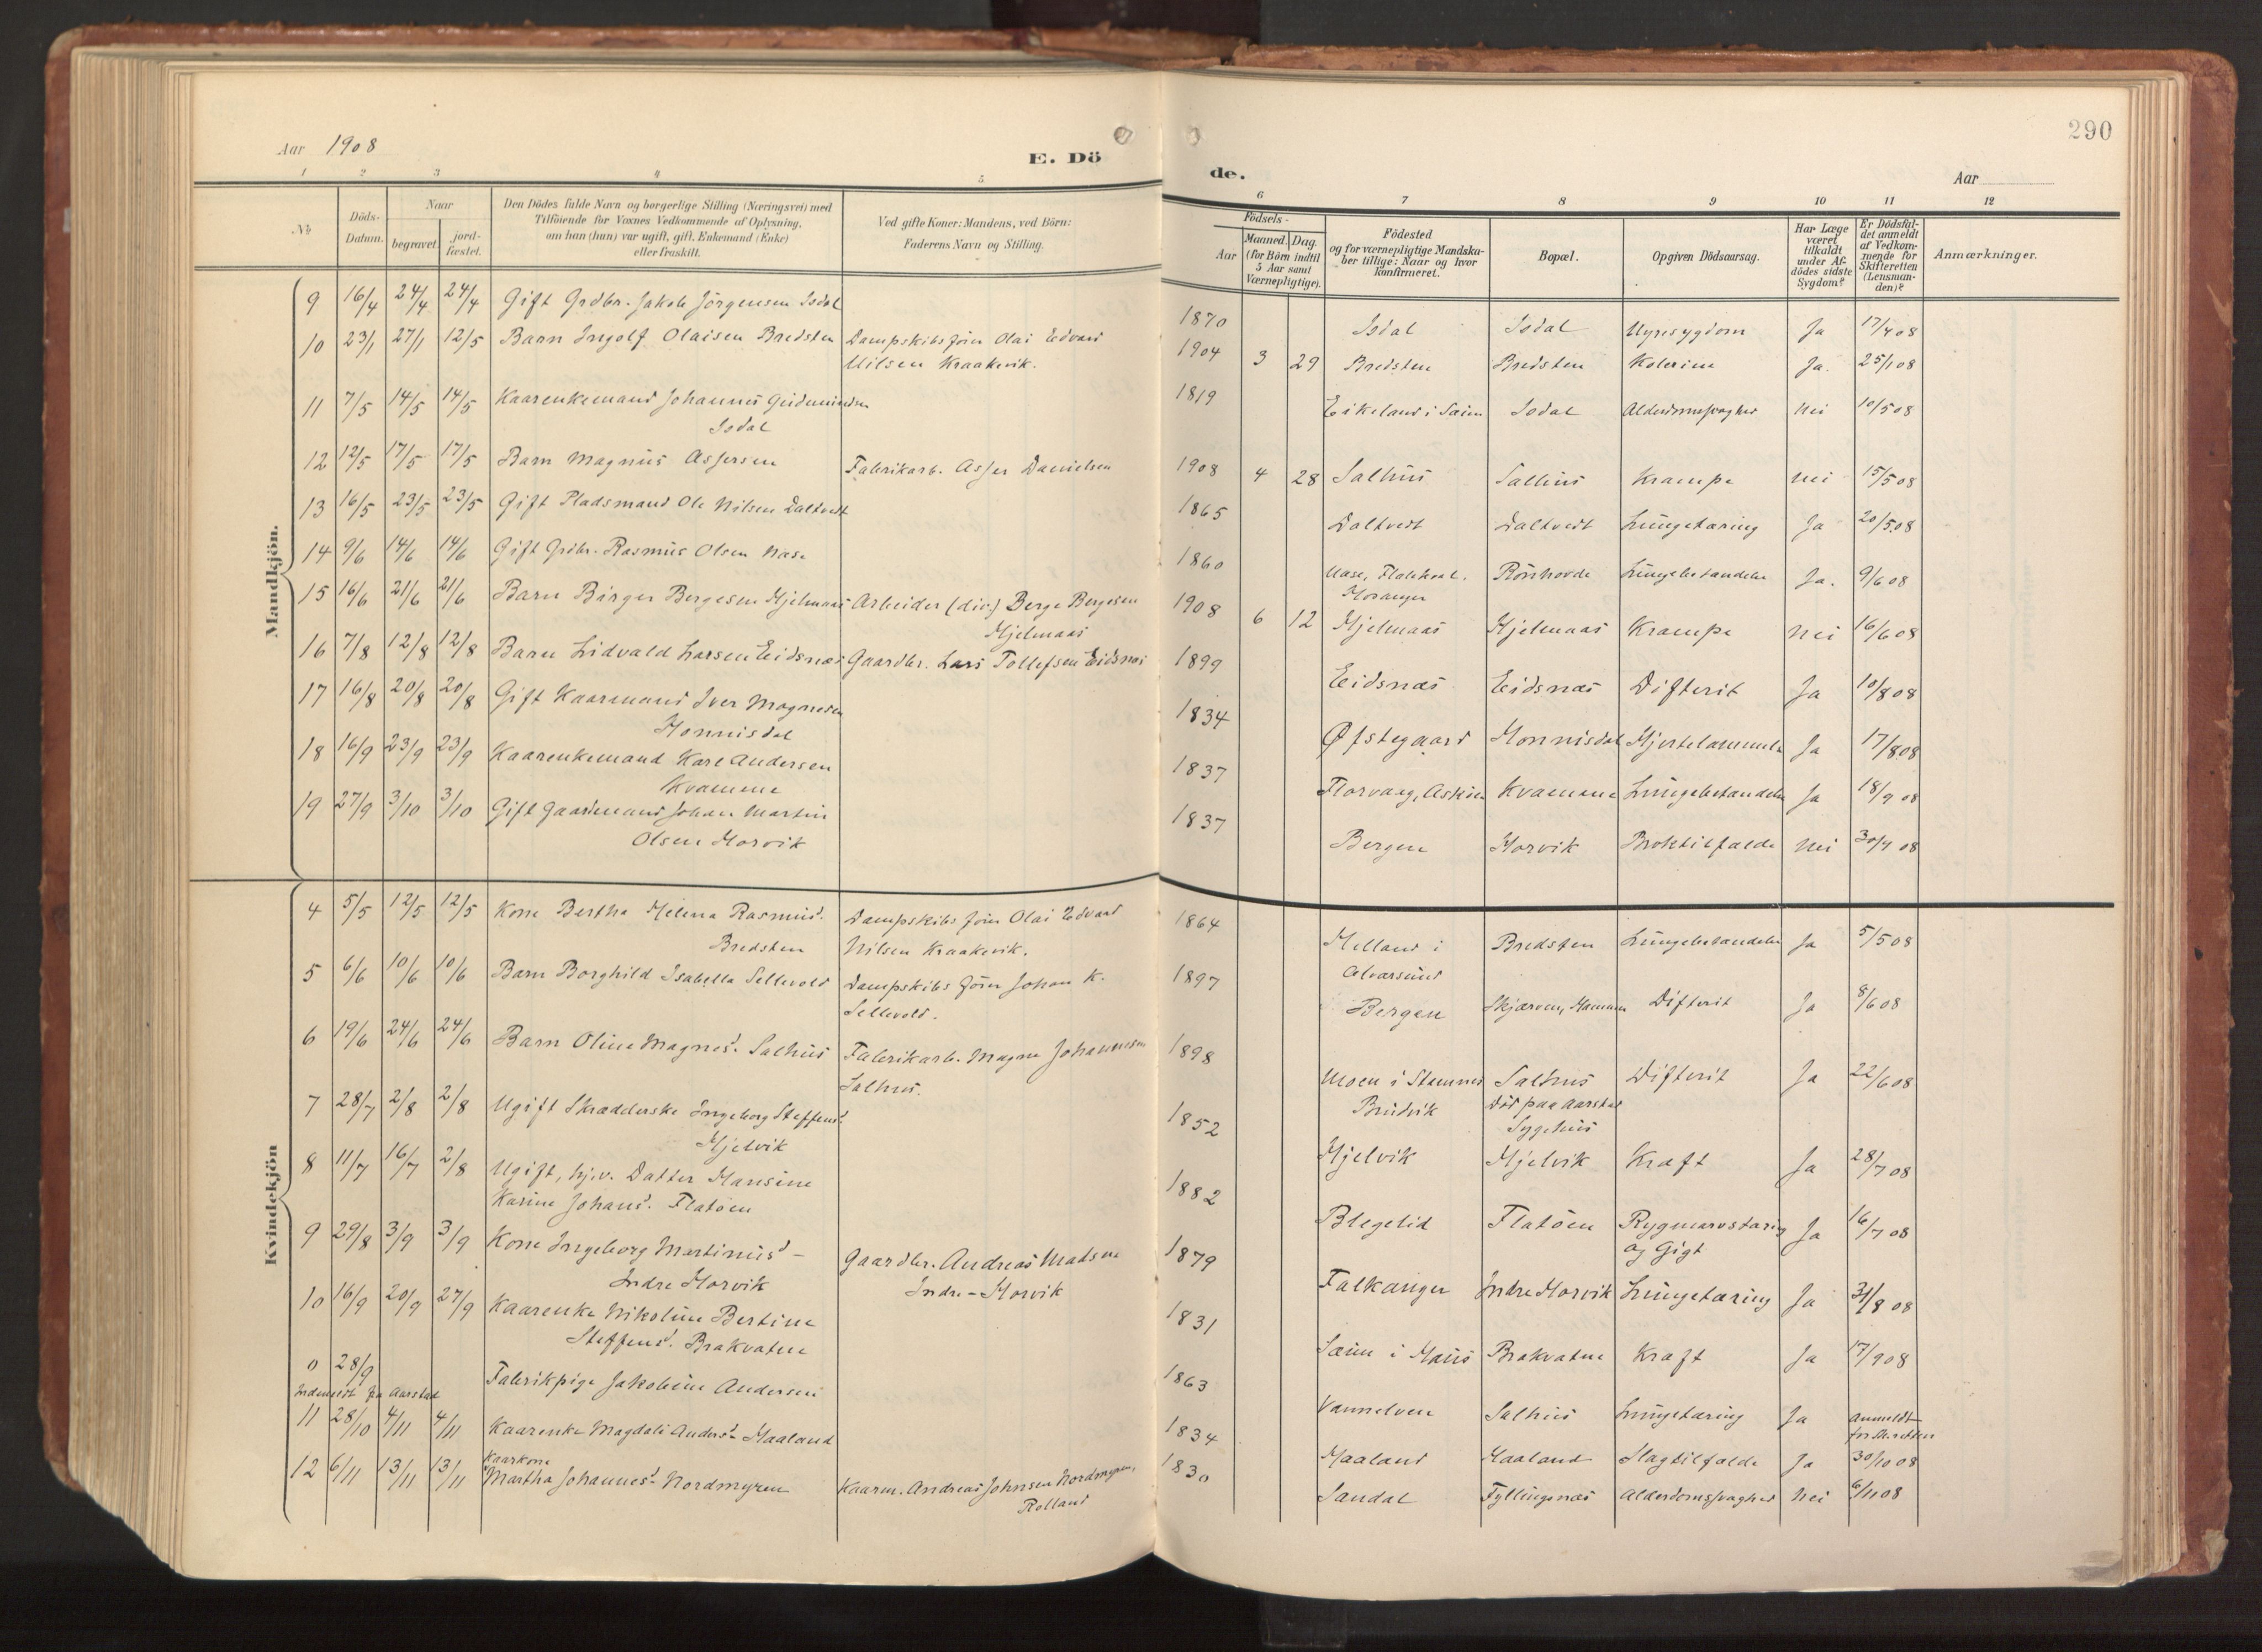 290
Aar 1908
E. Dö
de.
Aar
1 2 3 4 5 6 7 8 9 10 11 12
No
Döds-Datum.
Naar
begravet.
jord-fæstet.
Den Dödes fulde Navn og borgerlige Stilling (Næringsvei) med
Tilföiende for Voxnes Vedkommende af Oplysning,
om han (hun) var ugift, gift, Enkemand (Enke)
eller fraskilt.
Ved gifte Koner: Mandens, ved Börn:
Faderens Navn og Stilling.
Födsels-
Aar
Maaned. Dag.
(for Börn indtil
5 Aar samt
Værnepligtige).
Födested
og for værnepligtige Mandska-
ber tillige: Naar og hvor
konfirmeret.
Bopæl.
Opgiven Dödsaarsag.
Har Læge
været
tilkaldt
under Af-
dödes sidste
Sygdom?
Er Dödsfal-
det anmeldt
af Vedkom-
mende for
Skifteretten
(Lensman-
den)?
Anmærkninger.
Mandkjön.
9 16/4 24/4 24/4 Gift Grdbr. Jakob Jörgensen Isdal 1870 Isdal Isdal Nyresygdom Ja 17/4 08
10 23/1 27/1 12/5 Barn Ingolf Olaisen Bredsten Dampskibsförer Olai Edvard 1904 3 29 Bredsten Bredsten Kolerine Ja. 25/1 08
Nilsen Kraakevik.
11 7/5 14/5 14/5 Kaarenkemand Johannes 1819 Eikeland i Sæim Isdal Alderdomssvaghed Nei 10/5 08
Isdal
12 12/5 17/5 17/5 Barn Magnus Asjersen Fabrikarb. Asjer Danielsen 1908 4 28 Salhus Salhus Krampe Nei 15/5 08
13 16/5 23/5 23/5 Gift Pladsmand Ole Nilsen Daltvedt 1865 Daltvedt Daltvedt Lungetæring Ja 20/5 08
14 9/6 14/6 14/6 Gift Grdbr. Rasmus Olsen Nase 1860 Nase, Rönhovde Lungebetændelse Ja. 9/6 08
Hosanger
15 16/6 21/6 21/6 Barn Birger Bergesen Hjelmaas Arbeider (div.) Berge Bergesen 1908 6 12 Hjelmaas Hjelmaas Krampe Nei 16/6 08
Hjelmaas
16 7/8 12/8 12/8 Barn Lidvald Larsen Eidsnæs Gaardbr. Lars Tollefsen Eidsnæs 1899 Eidsnæs Eidsnæs Difterit Ja 10/8 08
17 16/8 20/8 20/8 Gift Kaarmand Iver Magnesen 1834 Øfstegaard Honnisdal Hjertelammelse Ja 17/8 08
Honnisdal
18 16/9 23/9 23/9 Kaarenkemand Karl Andersen 1837 Florvaag, Askøen Kvamme Lungebetændelse Ja 18/9 08
Kvamme
19 27/9 3/10 3/10 Gift Gaardmand Johan Martin 1837 Bergen Horvik Broktilfælde Nei 30/9 08
Olsen Horvik
Kvindekjön
4 5/5 12/5 12/5 Kone Bertha Helena Rasmusd. Dampskibsförer Olai Edvard 1864 Helland i Bredsten Lungebetændelse Ja 5/5 08
Bredsten Nilsen Kraakevik. Alversund
5 6/6 10/6 10/6 Barn Borghild Isabella Sellevold Dampskibsförer Johan K. 1897 Bergen Skjærven, Hammer Difterit Ja 8/6 08
Sellevold.
6 19/6 24/6 24/6 Barn Oline Magnesd. Salhus Fabrikarb. Magne Johannesen 1898 Moen i Stamnes Salhus Difterit Ja 22/6 08
Salhus. Bruvik Död paa Aarstad
Sygehus
7 28/7 2/8 2/8 Ugift Skrædderske Ingeborg Steffensd. 1852 Hjelvik Hjelvik Kræft Ja 28/7 08
Hjelvik
8 11/7 16/7 2/8 Ugift, hjv. Datter Hansine 1882 Blegelid Flatöen Rygmarvstæring Ja 16/7 08
Karine Johansd. Flatöen og Gigt
9 29/8 3/9 3/9 Kone Ingeborg Martinusd. Gaardbr. Andreas Madsen 1879 Falkanger Indre Horvik Lungetæring Ja 31/8 08
Indre Horvik Indre-Horvik
10 16/9 20/9 27/9 Kaarenke Nikoline Bertine 1831 Sæim i Haus Brakvatne Kræft Ja 17/9 08
Steffensd. Brakvatne
0 28/9 Fabrikpige Jakobine Andersen 1863 Vannelven Salhus Lungetæring Ja Anmeldt
Indmeldt fra Aarstad for Sk.retten
11 28/10 4/11 4/11 Kaarenke Magdali Andersd. Haaland 1834 Haaland Haaland Slagtilfælde Ja 30/10 08
12 6/11 13/11 13/11 Kaarkone
Martha Johannesd. Nordmyren Kaarm. Andreas Johnsen Nordmyren, 1830 Sandal Fyllingsnæs Alderdomssvaghed Nei 6/11 08
Rolland